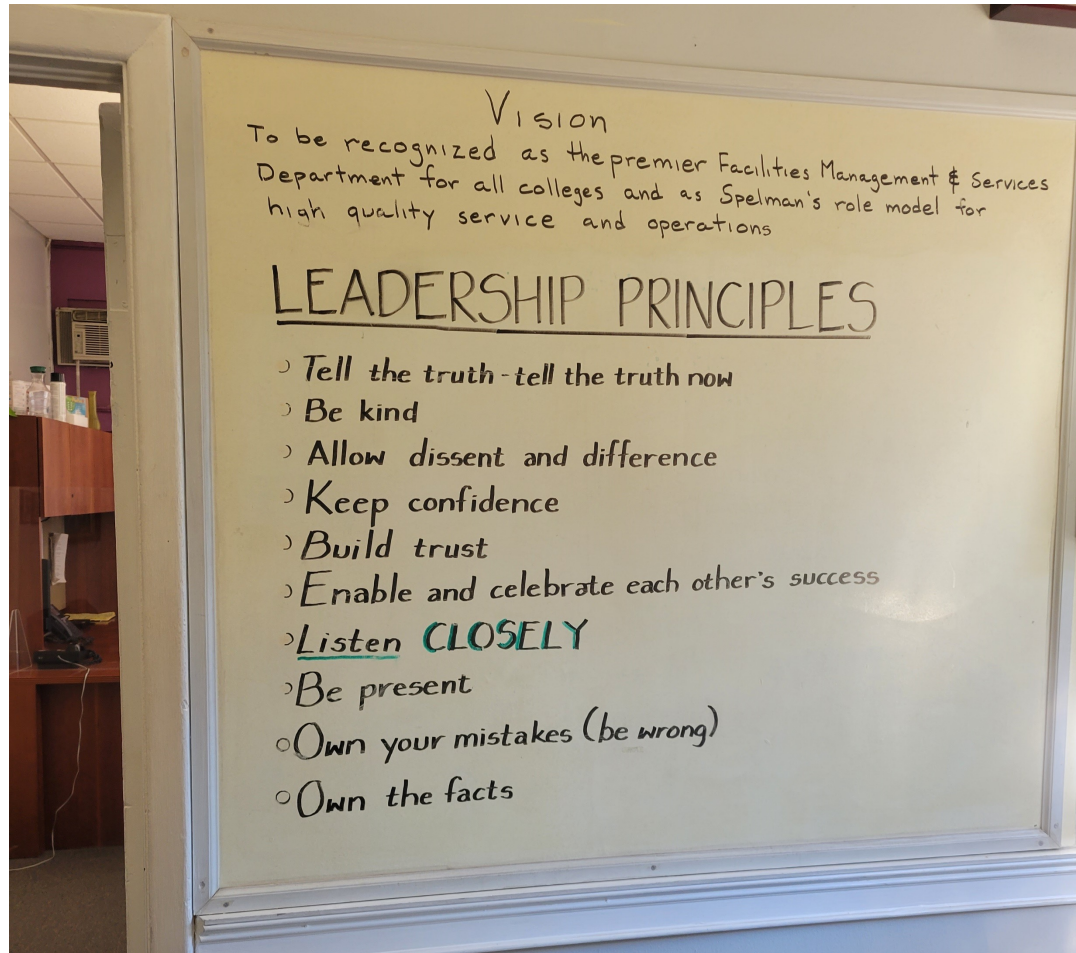 Vision
To be recognized as the premier Facilities Management & Services
Department for all colleges and as Spelman's role model for
high quality service and operations
LEADERSHIP PRINCIPLES
Tell the truth - tell the truth now
Be kind
Allow dissent and difference
Keep confidence
Build trust
Enable and celebrate each other's success
Listen CLOSELY
Be present
Own your mistakes (be wrong)
Own the facts